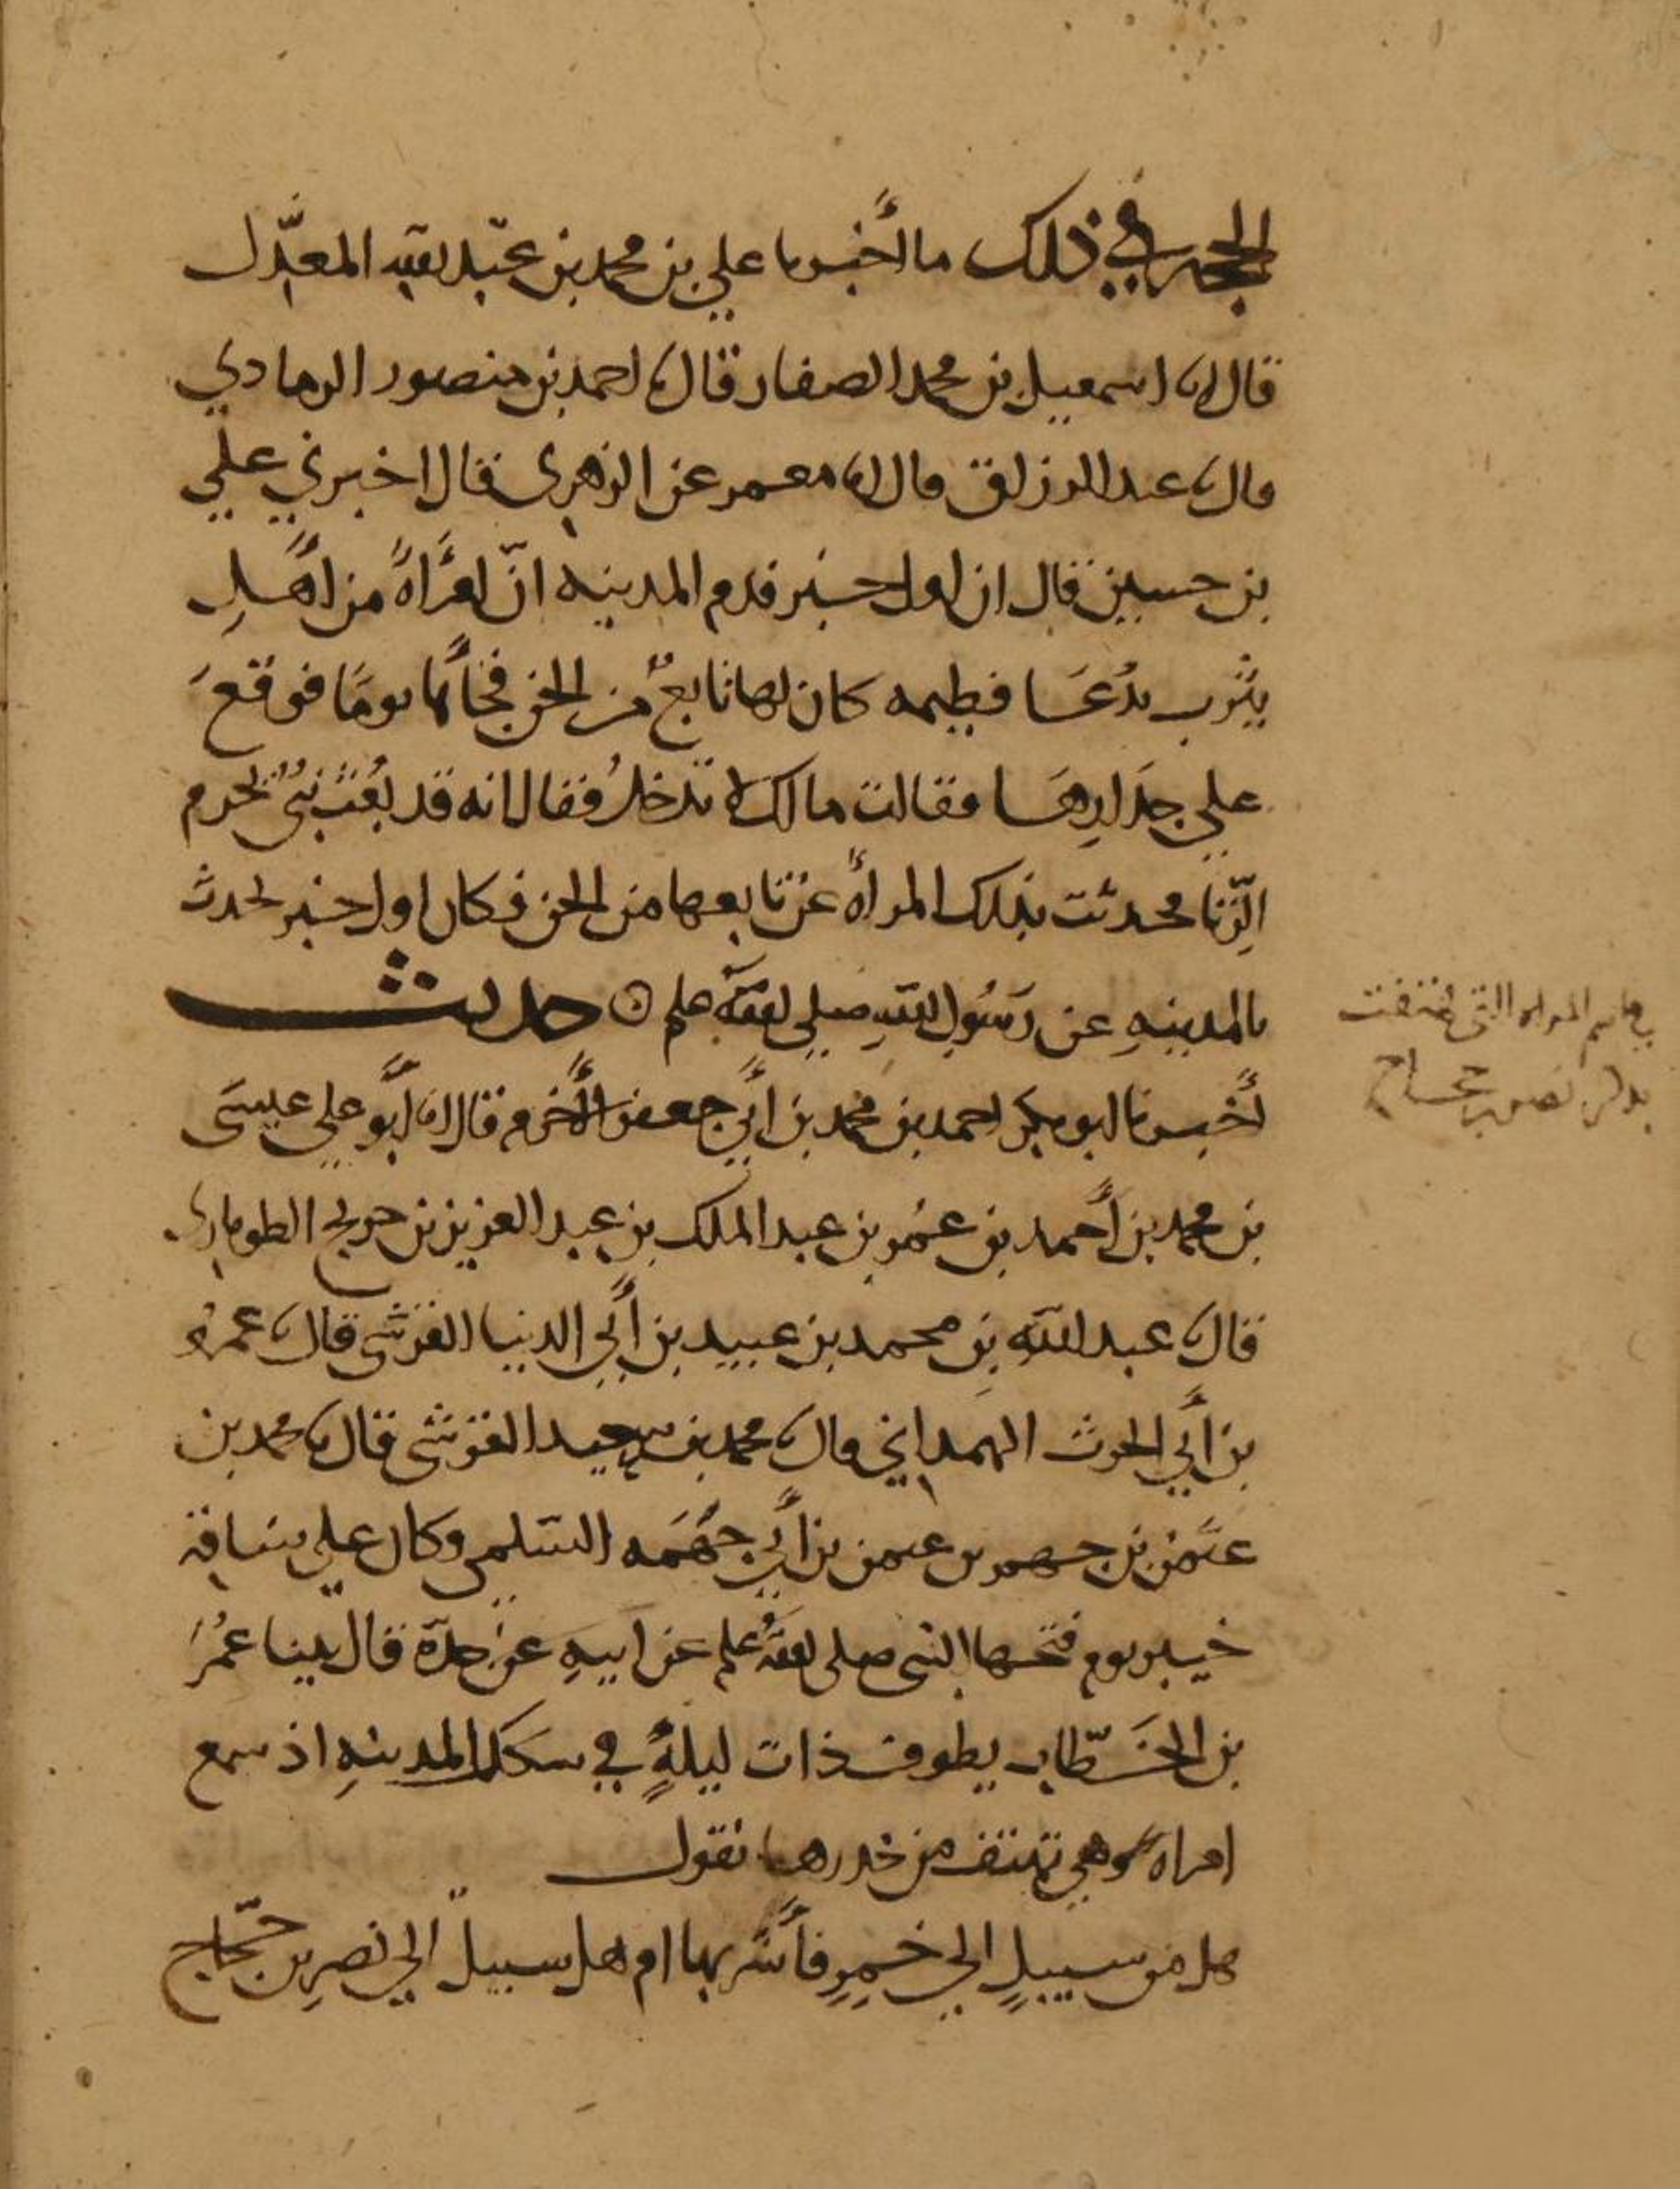 الحجه في ذلك ما أخبرنا علي بن محمد بن عبد الله المعدّل
قال انا اسمعيل بن محمد الصفار قال نا احمد بن منصور الرمادي
قال نا عبد الرزاق قال انا معمر عن الزهري قال اخبرني علي
بن حسين قال ان اول خبر قدم المدينه انّ امرَأةً من أهلِ
يثرب تدُعَا فطيمه كان لها تابعٌ من الجن فجأَها يومًا فوقعَ
علي جدَارِهَا فقالت مالك لا تدخلُ فقال انه قد بُعث نبيٌ يحرم
الزّنا فحدثت بذلك المرأة عن تابعها من الجن فكان اول خبر تحدث
بالمدينهِ عن رَسُولِ اللهِ صلي الله علم ۞ حديث
أخبرنا ابو بكر احمد بن محمد بن أبي جعفر الأخرم قال انا أبو علي عيسَى
بن محمد بن أحمد بن عُمر بن عبد الملك بن عبد العزيز بن جريج الطوماري
قال نا عبد الله بن محمد بن عبيد بن أبي الدنيا القرشي قال نا عمرو
بن أبي الحرث الهمداني قال نا محمد بن سعيد القرشي قال نا محمد بن
عثمن بن جهم بن عثمن بن أبي جَهْمَه السّلمي وكان علي ساقة
خيبر يوم فتحها النبي صلى اللهُ علم عن ابيهِ عن جدّه قال بينا عُمرُ
بن الخَطّاب يطوف ذات ليلةٍ في سكك المدينهِ اذ سمع
امراه وهي تهتف من خدرها تقول
هل من سبيلٍ الي خمرٍ فأشربها ام هل سبيلٌ الي نصرِ بن حجّاج
في اسم المراه التي هتفت
بذكر نصر بن حجاج